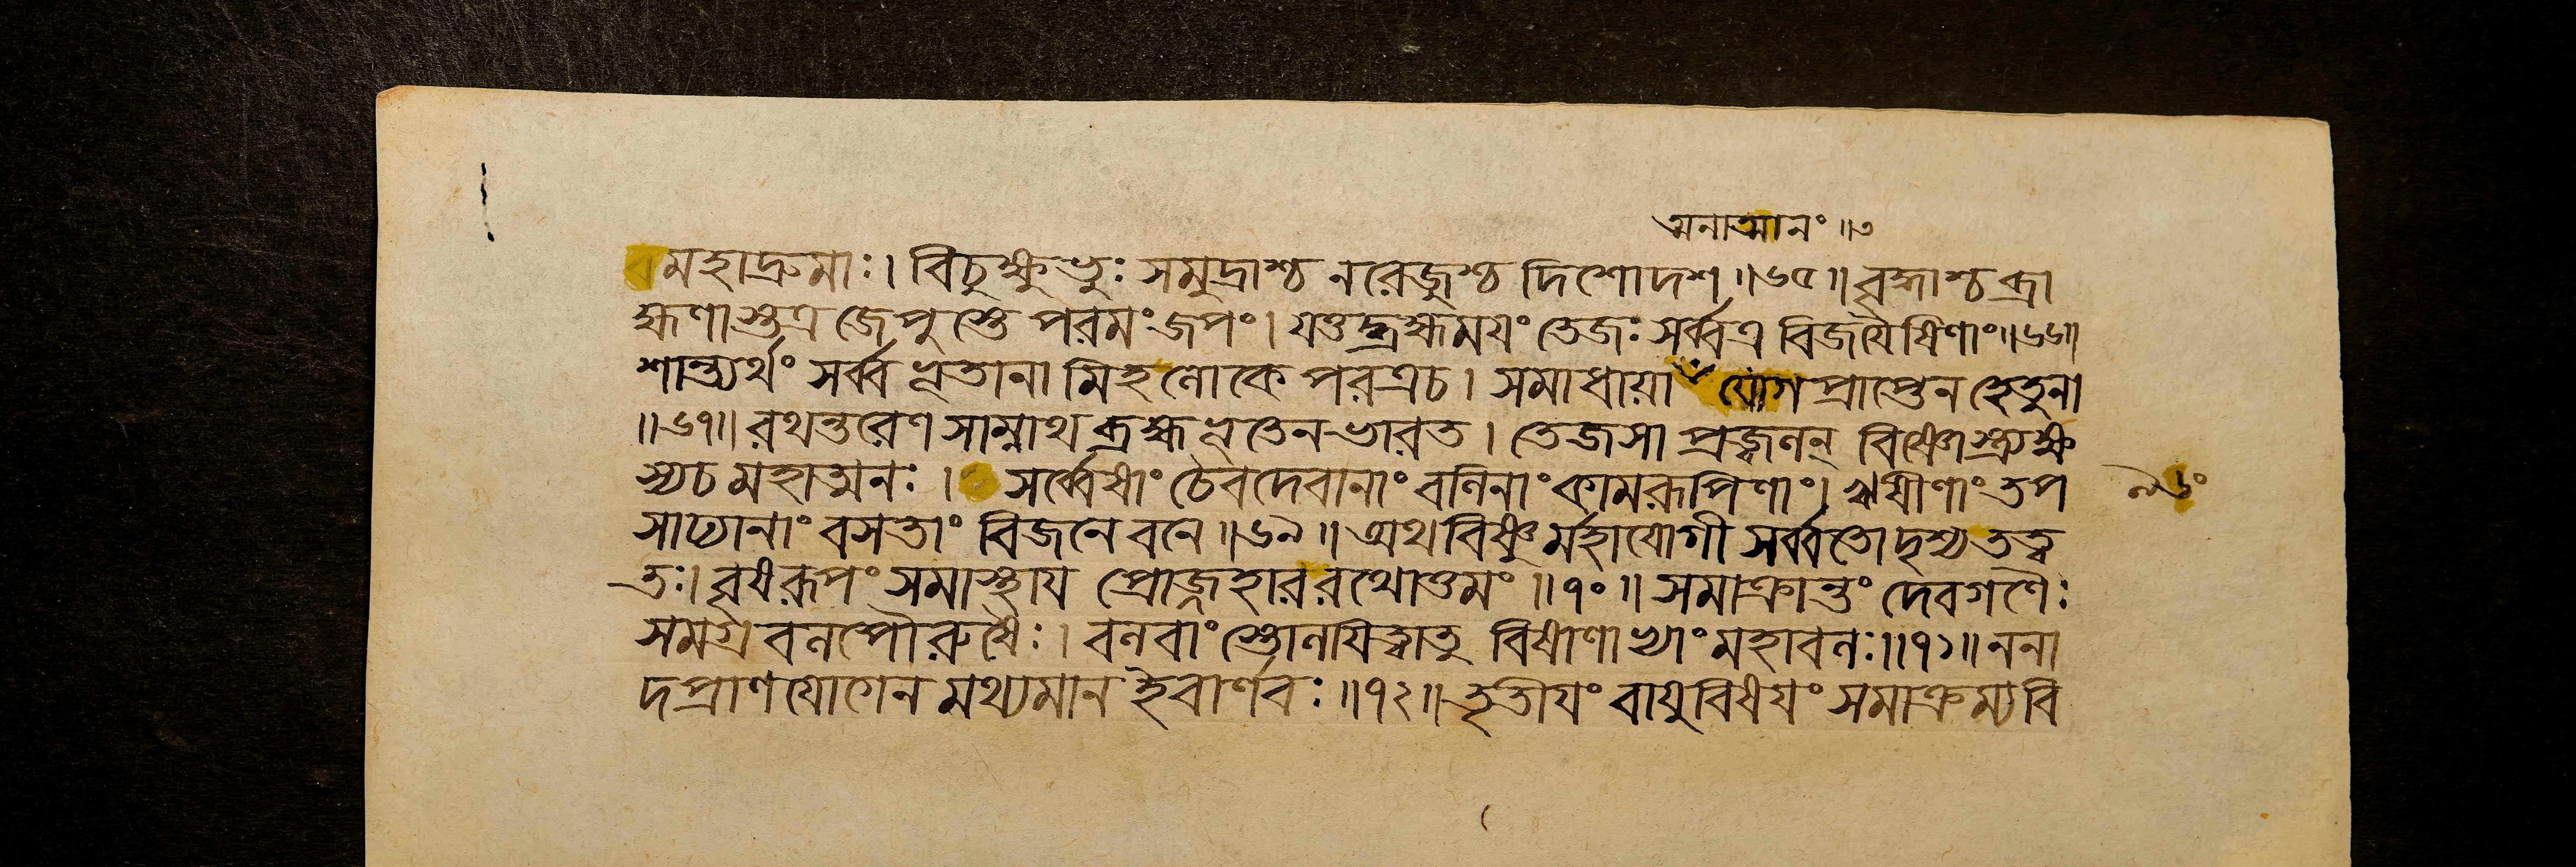 অনাত্মানং ॥৩
বমহাদ্রুমাঃ। বিচুক্ষুভুঃ সমুদ্রাশ্চ নরেজুশ্চ দিশোদশ ॥৬৫॥ বৃদ্ধাশ্চব্রা
হ্মণাস্তত্র জেপুস্তে পরমং জপং। যত্তদ্ব্রহ্মময়ং তেজঃ সর্ব্বত্র বিজয়ৈষিণাং॥৬৬॥
শান্ত্যর্থং সর্ব্ব ভূতানা মিহলোকে পরত্রচ। সমাধায়া যোগপ্রাপ্তেন হেতুনা
॥৬৭॥ রথন্তরেণ সাম্নাথ ব্রহ্মভূতেন ভারত। তেজসা প্রজ্জ্বলন্ বিষ্ণোস্ত্র্যক্ষ
স্যচ মহাত্মনঃ। সর্ব্বেষাং চৈবদেবানাং বলিনাং কামরূপিণাং। ঋষীণাং তপ
সাঢ্যানাং বসতাং বিজনে বনে ॥৬৯॥ অথবিষ্ণুর্মহাযোগী সর্ব্বতোদৃশ্যতত্ত্ব
তঃ। বৃষরূপং সমাস্থায় প্রোজ্জহাররথোত্তমং ॥৭০॥ সমাক্রান্তং দেবগণৈঃ
সমগ্রবলপৌরুষৈঃ। বলবাংস্তোলয়িত্বাতু বিষাণাভ্যাং মহাবলঃ॥৭১॥ ননা
দপ্রাণযোগেন মথ্যমান ইবার্ণবঃ ॥৭২॥ তৃতীয়ং বায়ুবিষয়ং সমাক্রম্যবি